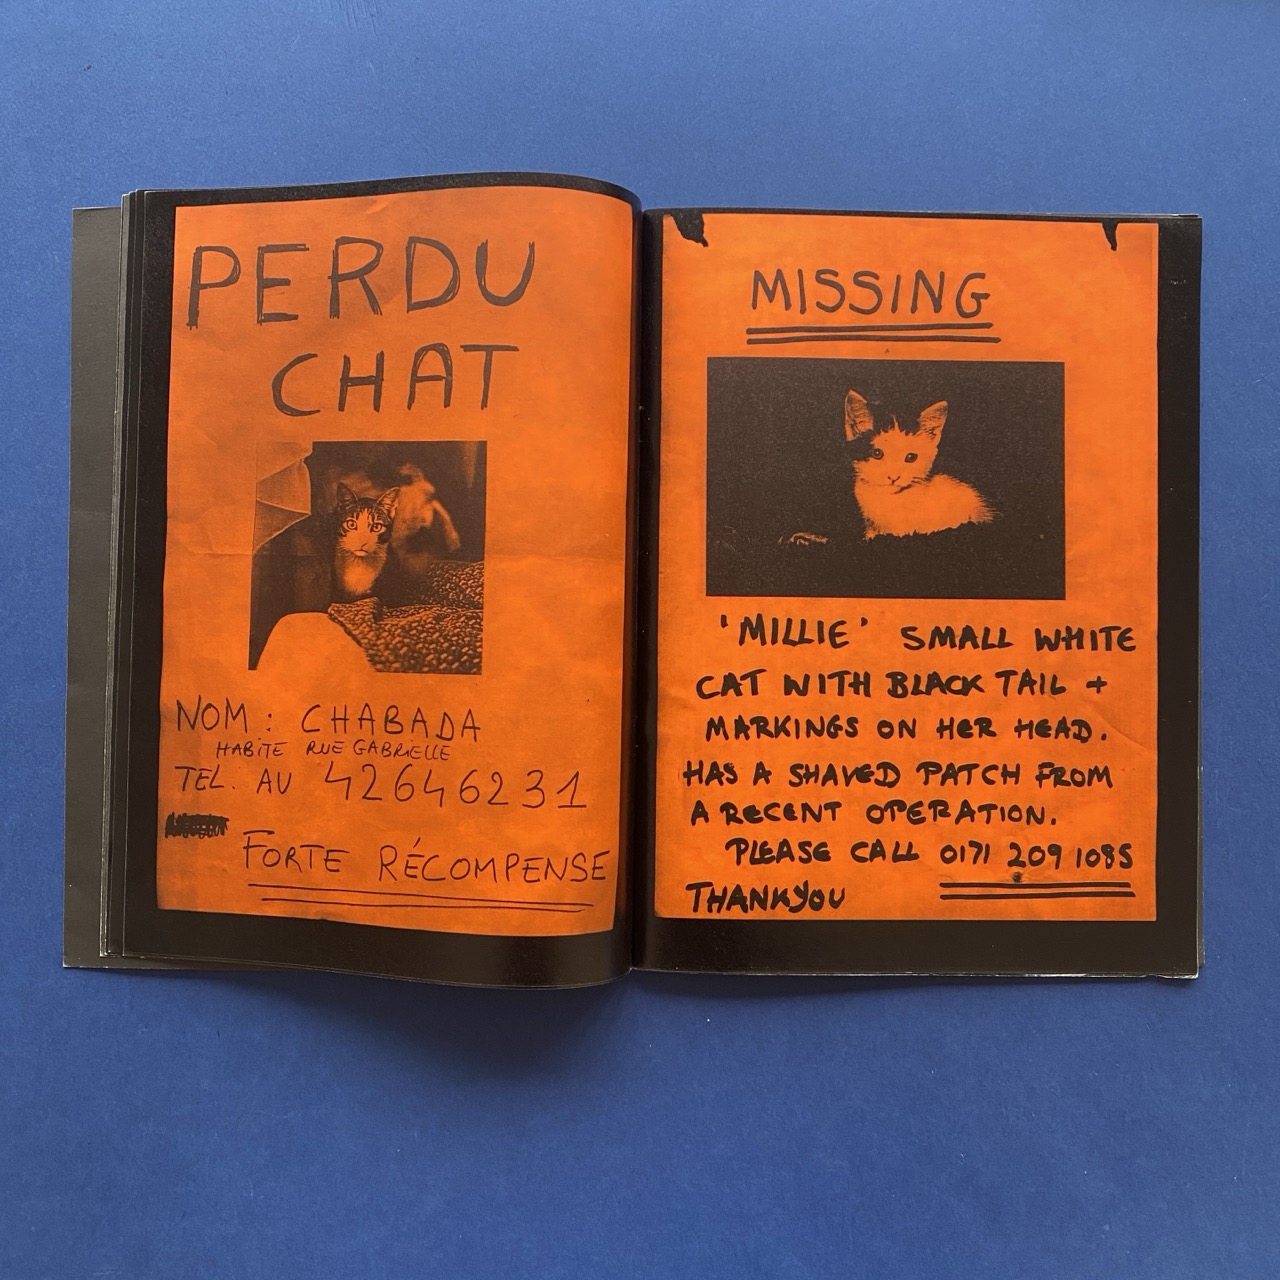 PERDU
CHAT
NOM : CHABADA
HABITE RUE GABRIELLE
TEL. AU 42646231
FORTE RÉCOMPENSE
MISSING
'MILLIE' SMALL WHITE
CAT WITH BLACK TAIL +
MARKINGS ON HER HEAD.
HAS A SHAVED PATCH FROM
A RECENT OPERATION.
PLEASE CALL 0171 209 1085
THANKYOU